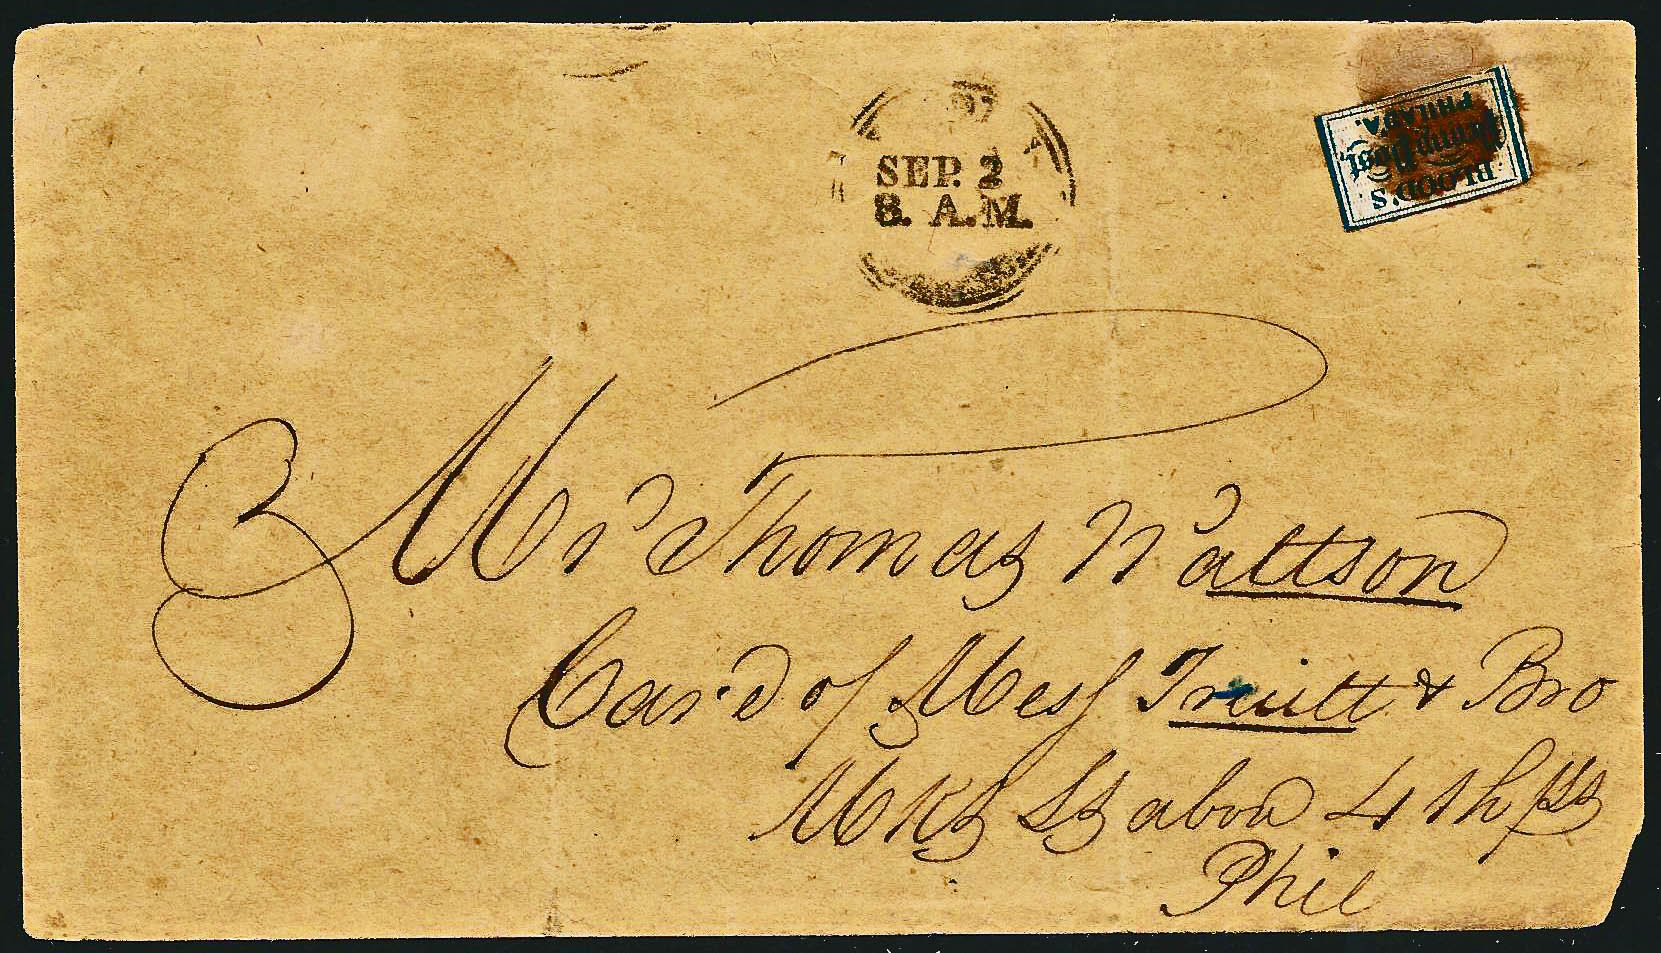 SEP. 2
8. A.M.
BLOOD'S
Penny Post,
PHILADA.
Mr Thomas Wattson
Care of Mess Truitt & Bro
Mkt St above 4th
Phil